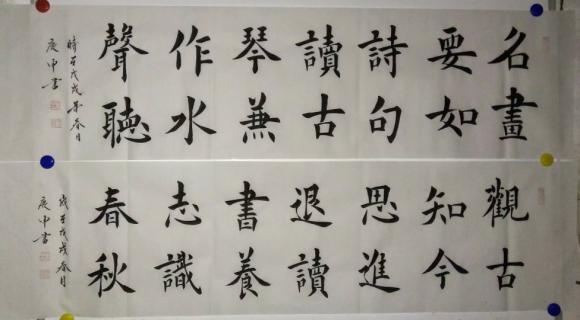 名畫
要如
詩句
讀古
琴兼
作水
聲聽
時在戊戌年春月
庚中書
觀古
知今
思進
退讀
書養
志識
春秋
歲在戊戌春月
庚中書